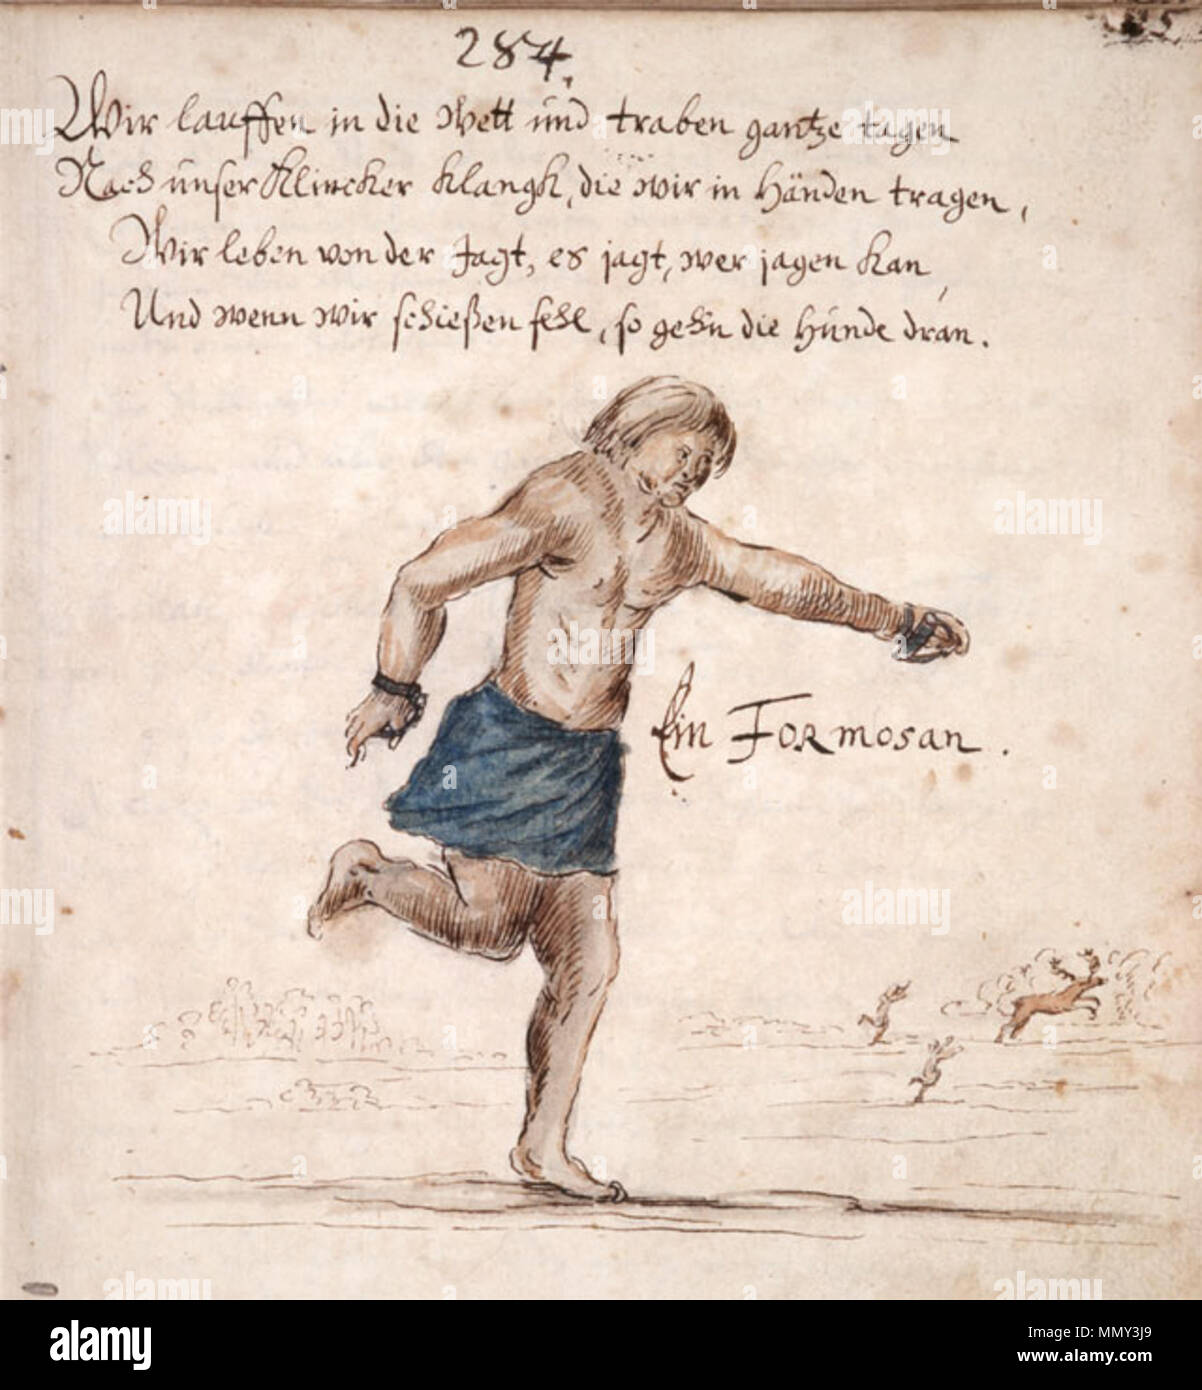 284.
Wir lauffen in die Wett und traben gantze tagen
Nach unser Klincker Klangk, die wir in Händen tragen,
Wir leben von der Jagt, es jagt, wer jagen Kan,
Und wenn wir schießen fehl, so gehn die Hunde dran.
Ein Formosan.
alamy
Image ID: MMY3J9
www.alamy.com